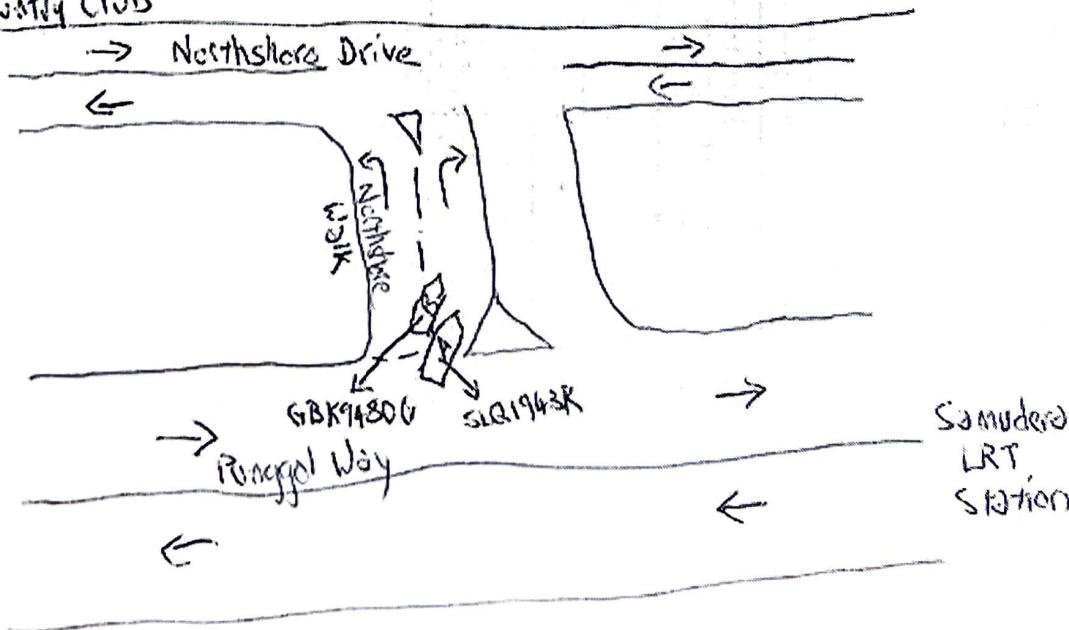 Northshore Drive
Northshore
Walk
GBK9480G
SLQ1943K
Punggol Way
Samudera
LRT
Station